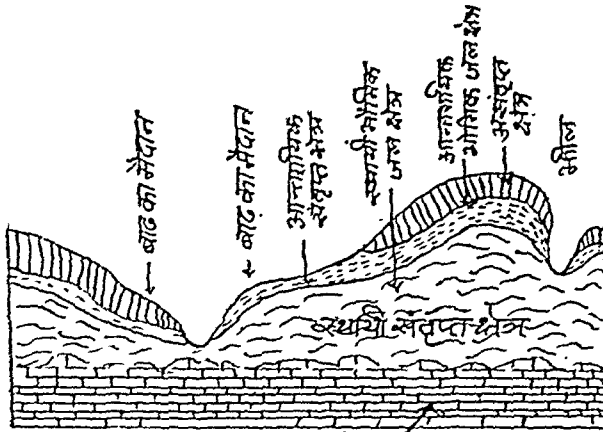 बाढ का मैदान
बाढ का मैदान
आन्तरायिक
संतृप्त क्षेत्र
स्थायी भौमिक
जल क्षेत्र
आन्तरायिक
भौमिक जल क्षेत्र
असंतृप्त
क्षेत्र
झील
स्थायी संतृप्त क्षेत्र